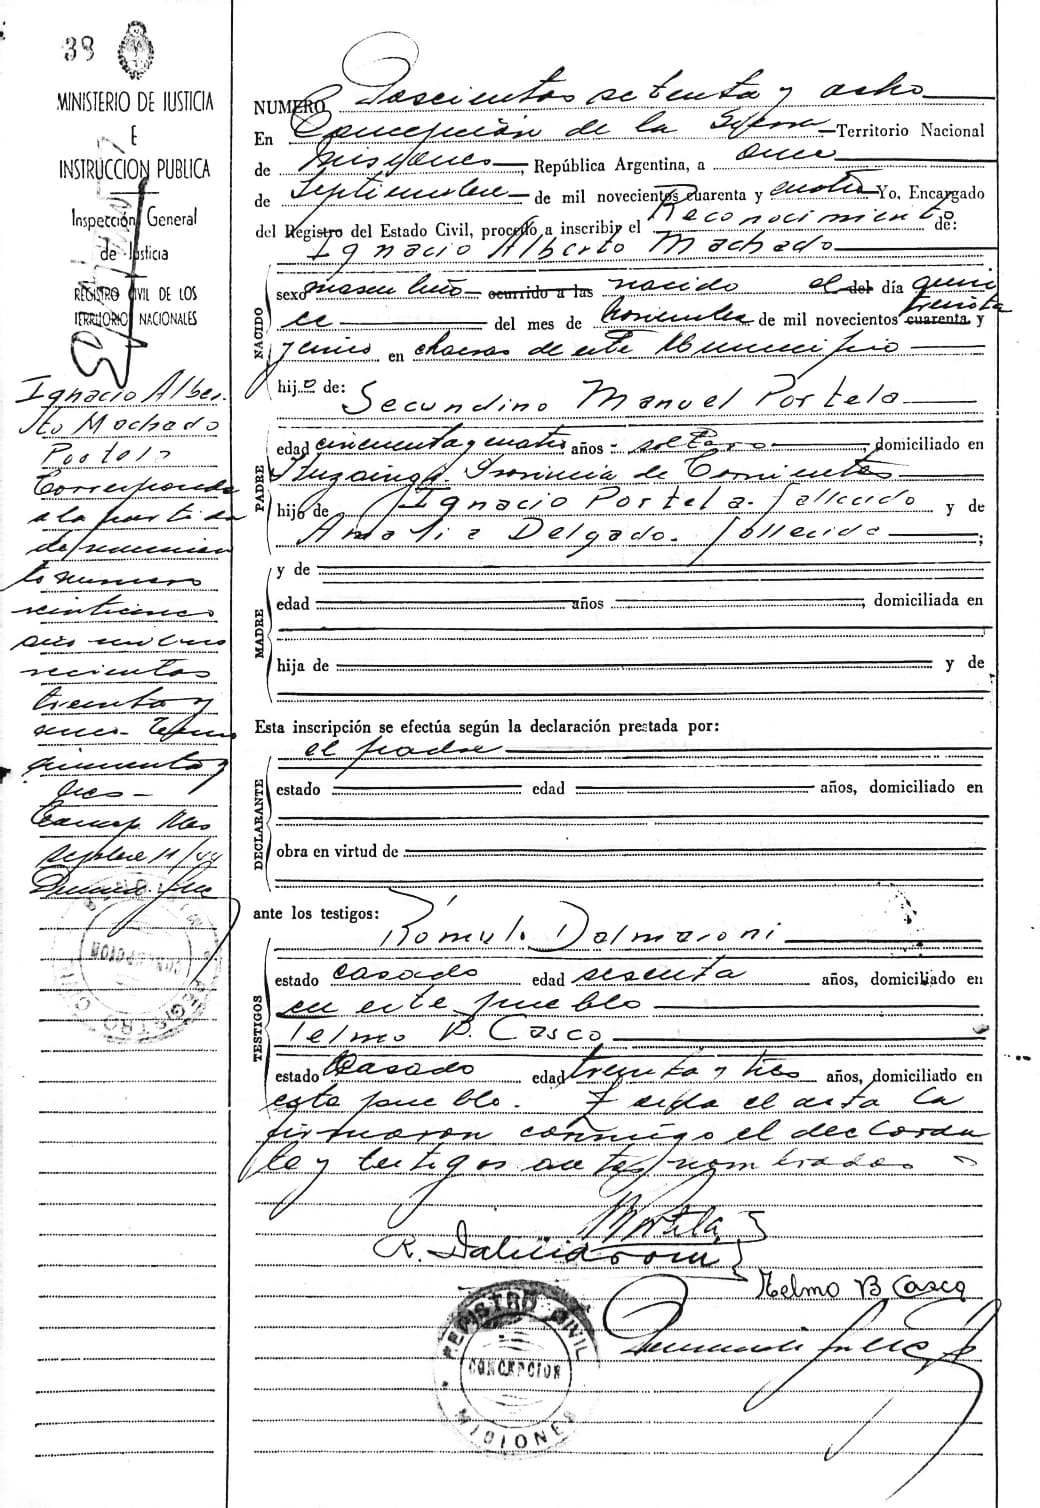 38
MINISTERIO DE JUSTICIA
E
INSTRUCCION PUBLICA
Inspección General
de Justicia
REGISTRO CIVIL DE LOS
TERRITORIOS NACIONALES
Ignacio Alber-
to Machado
Portela
Corresponde
a la partida
de nacimien
to numero
veinticinco
año mil nove
cientos
treinta y
seis- Tomo
quinientos y
tres-
Concep. Mes
Sepbre 11/44
REGISTRO CIVIL
CONCEPCION
NUMERO Doscientos setenta y ocho
En Concepción de la Sierra Territorio Nacional
de Misiones, República Argentina, a once
de Septiembre de mil novecientos cuarenta y cuatro Yo, Encargado
del Registro del Estado Civil, procedo a inscribir el Reconocimiento de:
Ignacio Alberto Machado
NACIDO
sexo masculino ocurrido a las nacido el del día quin
ce del mes de de mil novecientos cuarenta y treinta
y cinco en chacras de este Municipio
hijo de: Secundino Manuel Portela
PADRE
edad cincuenta y cuatro años - soltero, domiciliado en
Ituzaingó. Provincia de Corrientes
hijo de Ignacio Portela. fallecido y de
Amalia Delgado. fallecida;
MADRE
y de
edad años; domiciliada en
hija de y de
Esta inscripción se efectúa según la declaración prestada por:
el padre
DECLARANTE
estado edad años, domiciliado en
obra en virtud de
ante los testigos:
Rómulo Dalmaroni
TESTIGOS
estado casado edad sesenta años, domiciliado en
en este pueblo
Telmo B. Casco
estado Casado edad treinta y tres años, domiciliado en
este pueblo. Leida el acta la
firmaron conmigo el declaran
te y testigos antes nombrados
MPortela
R. Dalmaroni
Telmo B Casco
REGISTRO CIVIL
CONCEPCION
MISIONES